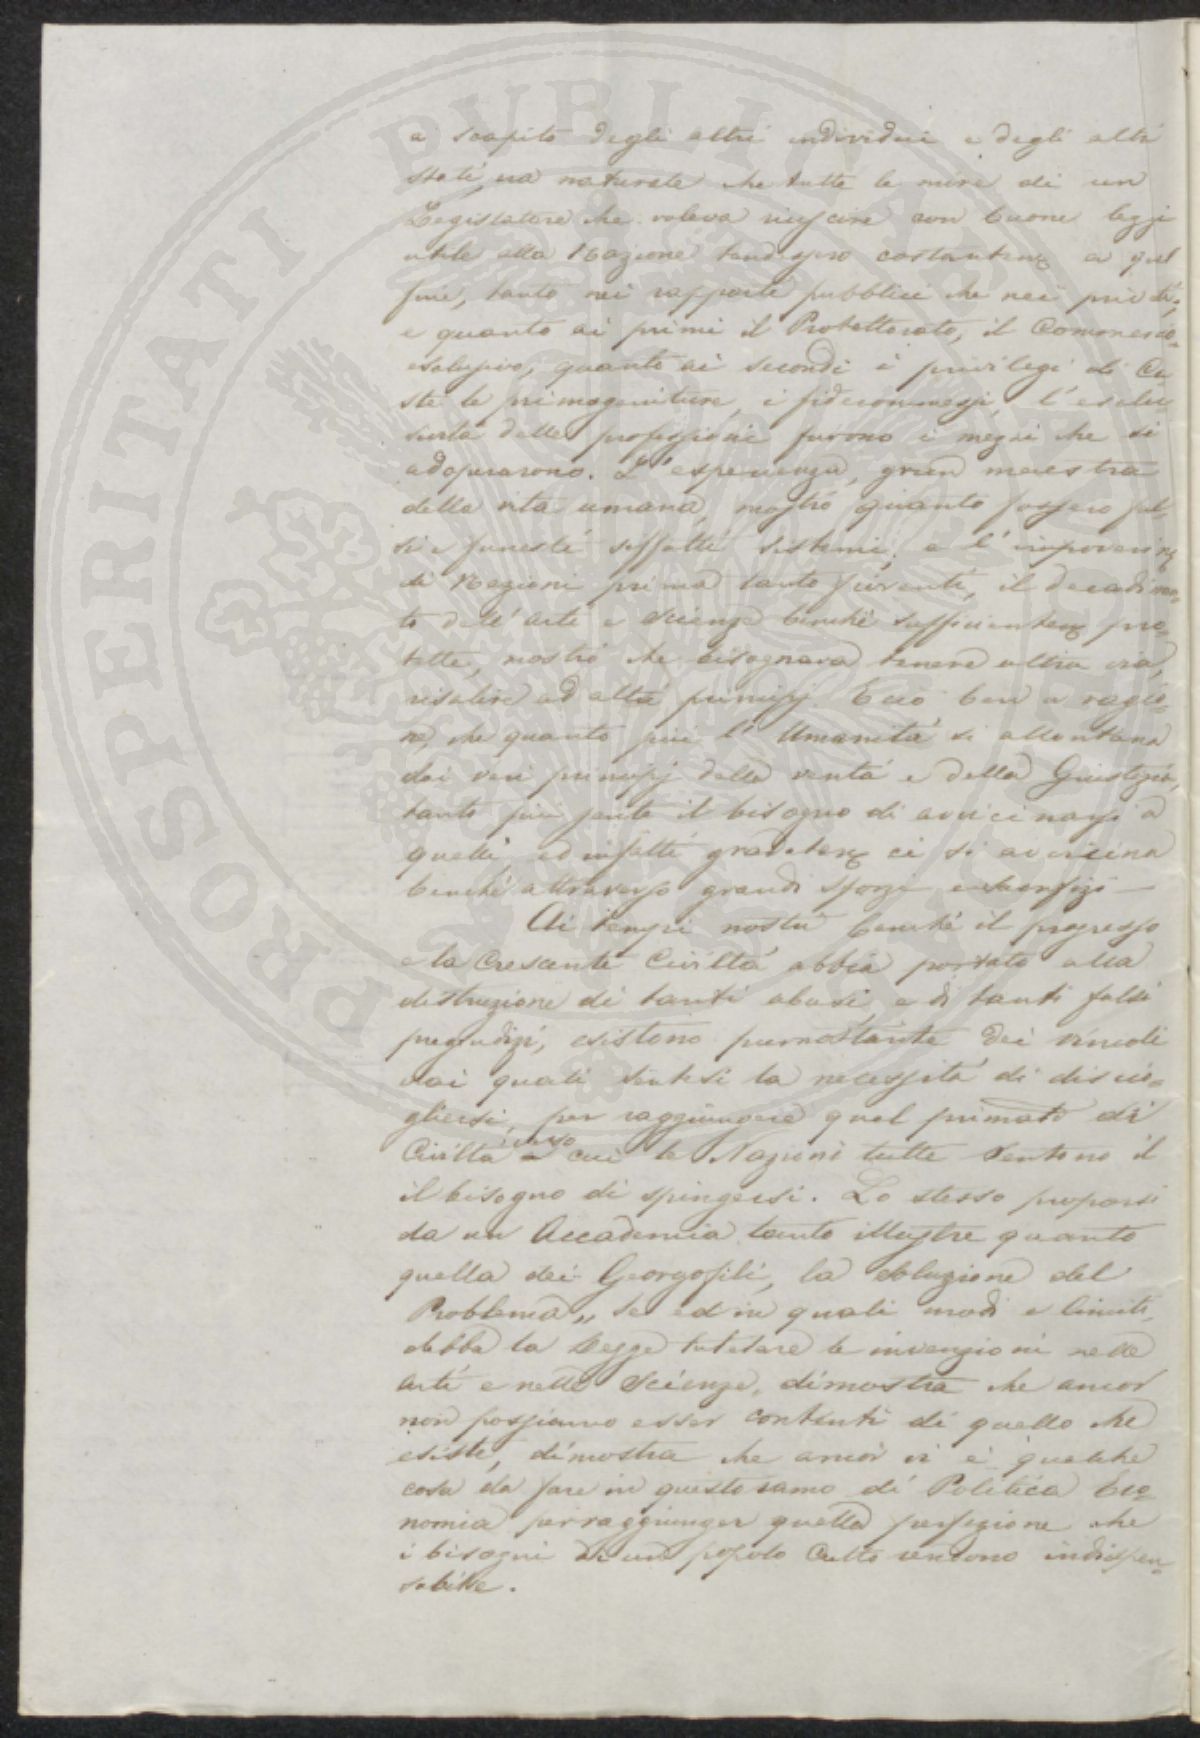 PROSPERITATI PUBLICAE
a scapito degli altri individui e degli altri
stati, era naturale che tutte le mire di un
Legislatore che voleva riuscire con buone leggi
utile alla Nazione tendessero costantem. a quel
fine, tanto nei rapporti pubblici che nei privati;
e quanto ai primi il Protettorato, il Commercio
esclusivo, quanto ai secondi i privilegi di Ca-
sta le primogeniture, i fidecommessi, l'esclu-
sività delle professioni furono i mezzi che si
adoperarono. L'esperienza, gran maestra
della vita umana, mostrò quanto fossero fal-
si e funesti siffatti sistemi, e l'impoverim.
di Nazioni prima tanto fiorenti, il decadimen-
to dell'arti e scienze benchè sufficientem. pro-
tette, mostrò che bisognava tenere altra via,
risalire ad altri principj. Ecco ben a ragio-
ne, che quanto più l'Umanità si allontana
dai veri principj della verità e della Giustizia,
tanto più sente il bisogno di avvicinarsi a
quelli, ed infatti gradatam. ci si avvicina
benchè attraverso grandi sforzi e sacrifizi —
Ai tempi nostri benchè il progresso
e la crescente Civiltà abbia portato alla
distruzione di tanti abusi, e di tanti falsi
pregiudizi, esistono purnostante dei vincoli
dai quali sentesi la necessità di discio-
gliersi, per raggiungere quel primato di
Civiltà verso cui le Nazioni tutte sentono il
il bisogno di spingersi. Lo stesso proporsi
da un Accademia tanto illustre quanto
quella dei Georgofili, la soluzione del
Problema „ se ed in quali modi e limiti
debba la Legge tutelare le invenzioni nelle
arti e nelle Scienze, dimostra che ancor
non possiamo esser contenti di quello che
esiste, dimostra che ancor vi è qualche
cosa da fare in questo ramo di Politica Eco-
nomia per raggiunger quella perfezione che
i bisogni di un popolo culto rendono indispen-
sabile.